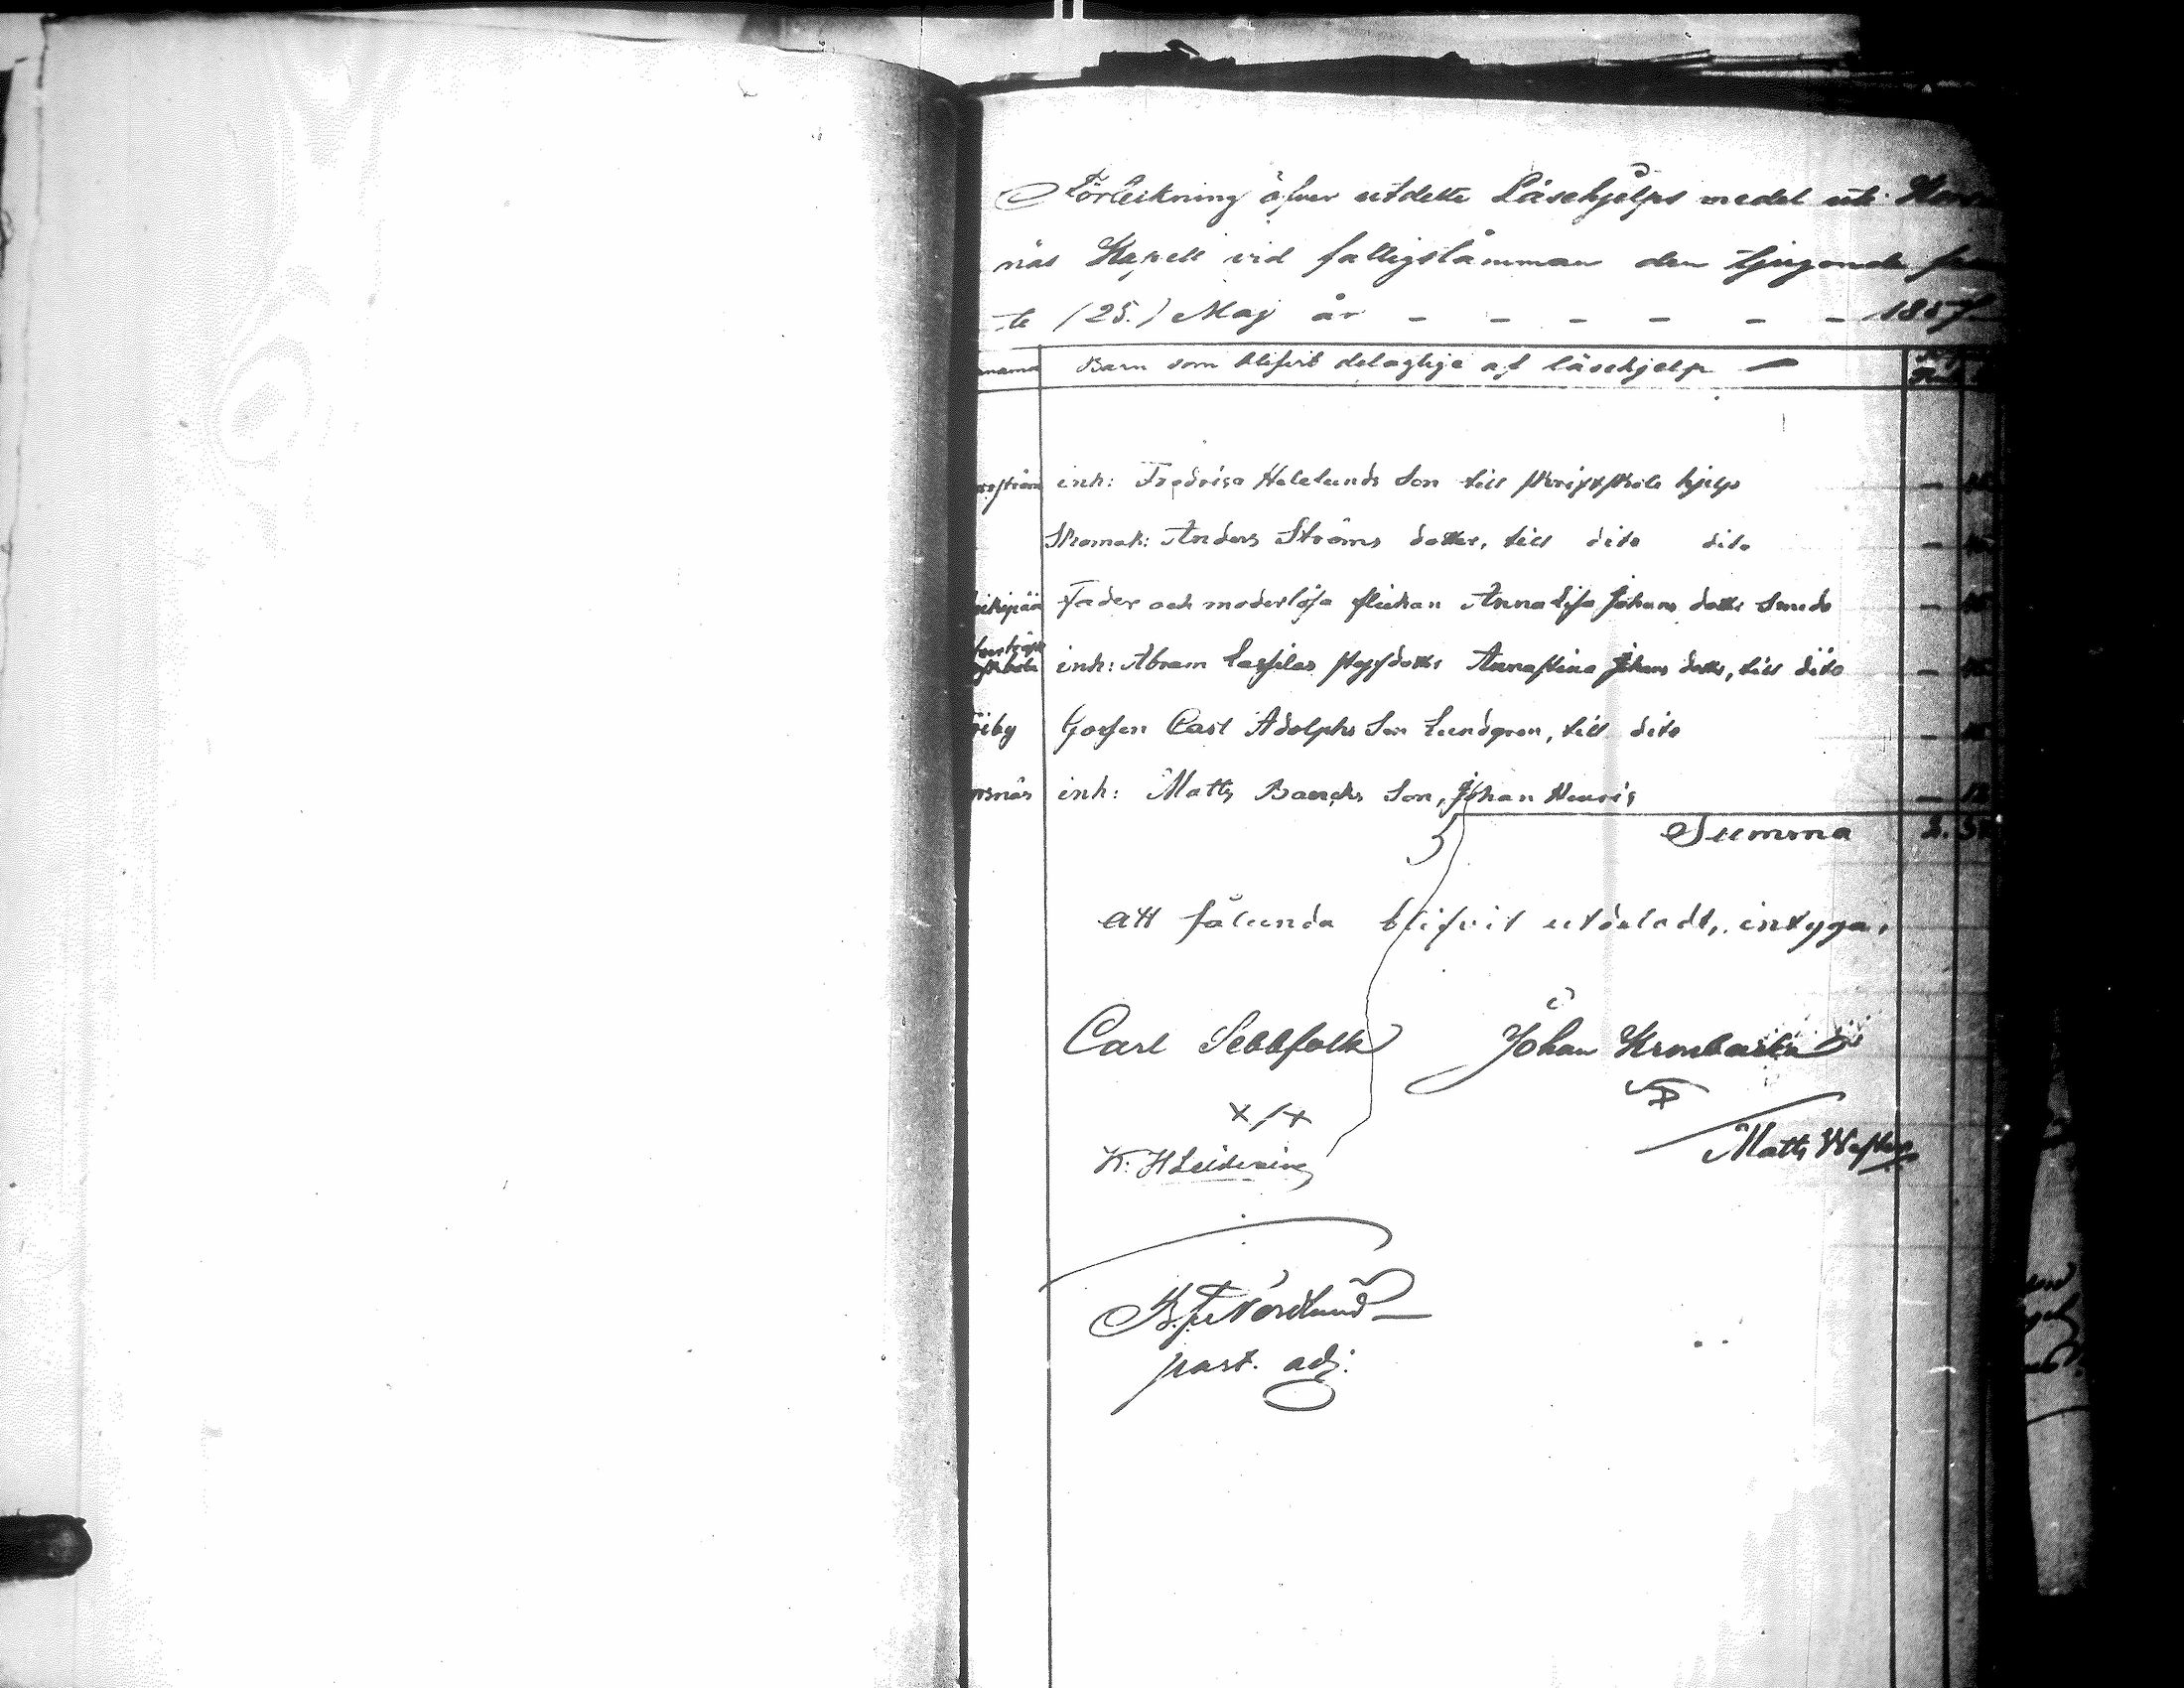 Förteikning öfver utdelte Läsehjelps medel uti Kors
näs Kapell vid fattigstämman den tjugonde fem
te (25.) Maj år - - - - - - 1857
namn Barn som blifvit delagtige af läsehjelp
inh: Fredrica Helelunds Son till skriftskole hjelp
Skomak: Anders Ströms dotter, till dito dito
Fader och moderlösa flickan Anna Lisa Johans dotter Smeds
inh: Abram Lassilas styfdotter Annastina Johans dotter, till dito
iby Gossen Carl Adolphs Son Lundgren, till dito
rsnäs inh: Matts Baecks Son, Johan Henric
Summa
att sålunda blifvit utdeladt, intyga,
Carl Sebbfolk Johan
Matts
K: H
Nordlund
past. adj.